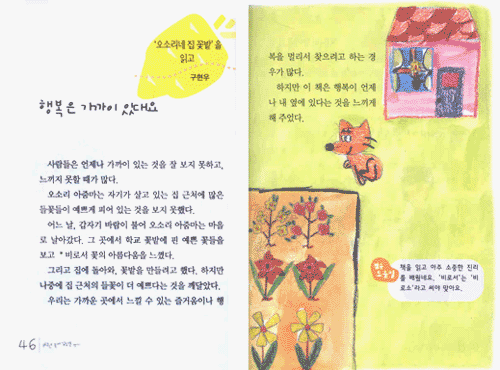 '오소리네 집 꽃밭'을
읽고
구현우
행복은 가까이 있대요
사람들은 언제나 가까이 있는 것을 잘 보지 못하고,
느끼지 못할 때가 많다.
오소리 아줌마는 자기가 살고 있는 집 근처에 많은
들꽃들이 예쁘게 피어 있는 것을 보지 못했다.
어느 날, 갑자기 바람이 불어 오소리 아줌마는 마을
로 날아갔다. 그 곳에서 학교 꽃밭에 핀 예쁜 꽃들을
보고 *비로서 꽃의 아름다움을 느꼈다.
그리고 집에 돌아와, 꽃밭을 만들려고 했다. 하지만
나중에 집 근처의 들꽃이 더 예쁘다는 것을 깨달았다.
우리는 가까운 곳에서 느낄 수 있는 즐거움이나 행
46
복을 멀리서 찾으려고 하는 경
우가 많다.
하지만 이 책은 행복이 언제
나 내 옆에 있다는 것을 느끼게
해 주었다.
책을 읽고 아주 소중한 진리
를 배웠네요. '비로서'는 '비
로소'라고 써야 맞아요.